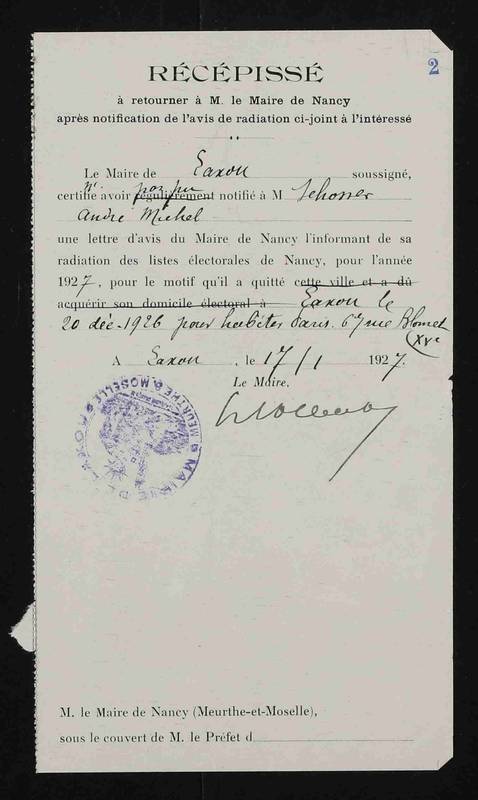 2
RÉCÉPISSÉ
à retourner à M. le Maire de Nancy
après notification de l'avis de radiation ci-joint à l'intéressé
Le Maire de Laxou soussigné,
n' pas pu
certifie avoir régulièrement notifié à M Schosser
André Michel
une lettre d'avis du Maire de Nancy l'informant de sa
radiation des listes électorales de Nancy, pour l'année
1927, pour le motif qu'il a quitté cette ville et a dû
acquérir son domicile électoral à Laxou le
20 déc. 1926 pour habiter Paris. 67 rue Blomet
(XVe
A Laxou, le 17/1 1927.
Le Maire,
MAIRIE DE LAXOU MEURTHE & MOSELLE
M. le Maire de Nancy (Meurthe-et-Moselle),
sous le couvert de M. le Préfet d